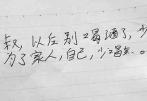 叔,以后别喝酒了,少
为了家人,自己,少喝点。